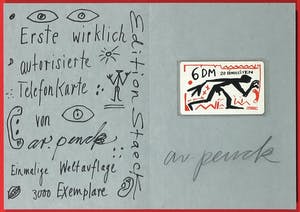 Erste wirklich
autorisierte
Telefonkarte
von
ar. penck
Einmalige Weltauflage
3000 Exemplare
Edition Staeck
6 DM
20 EINHEITEN
ar. penck